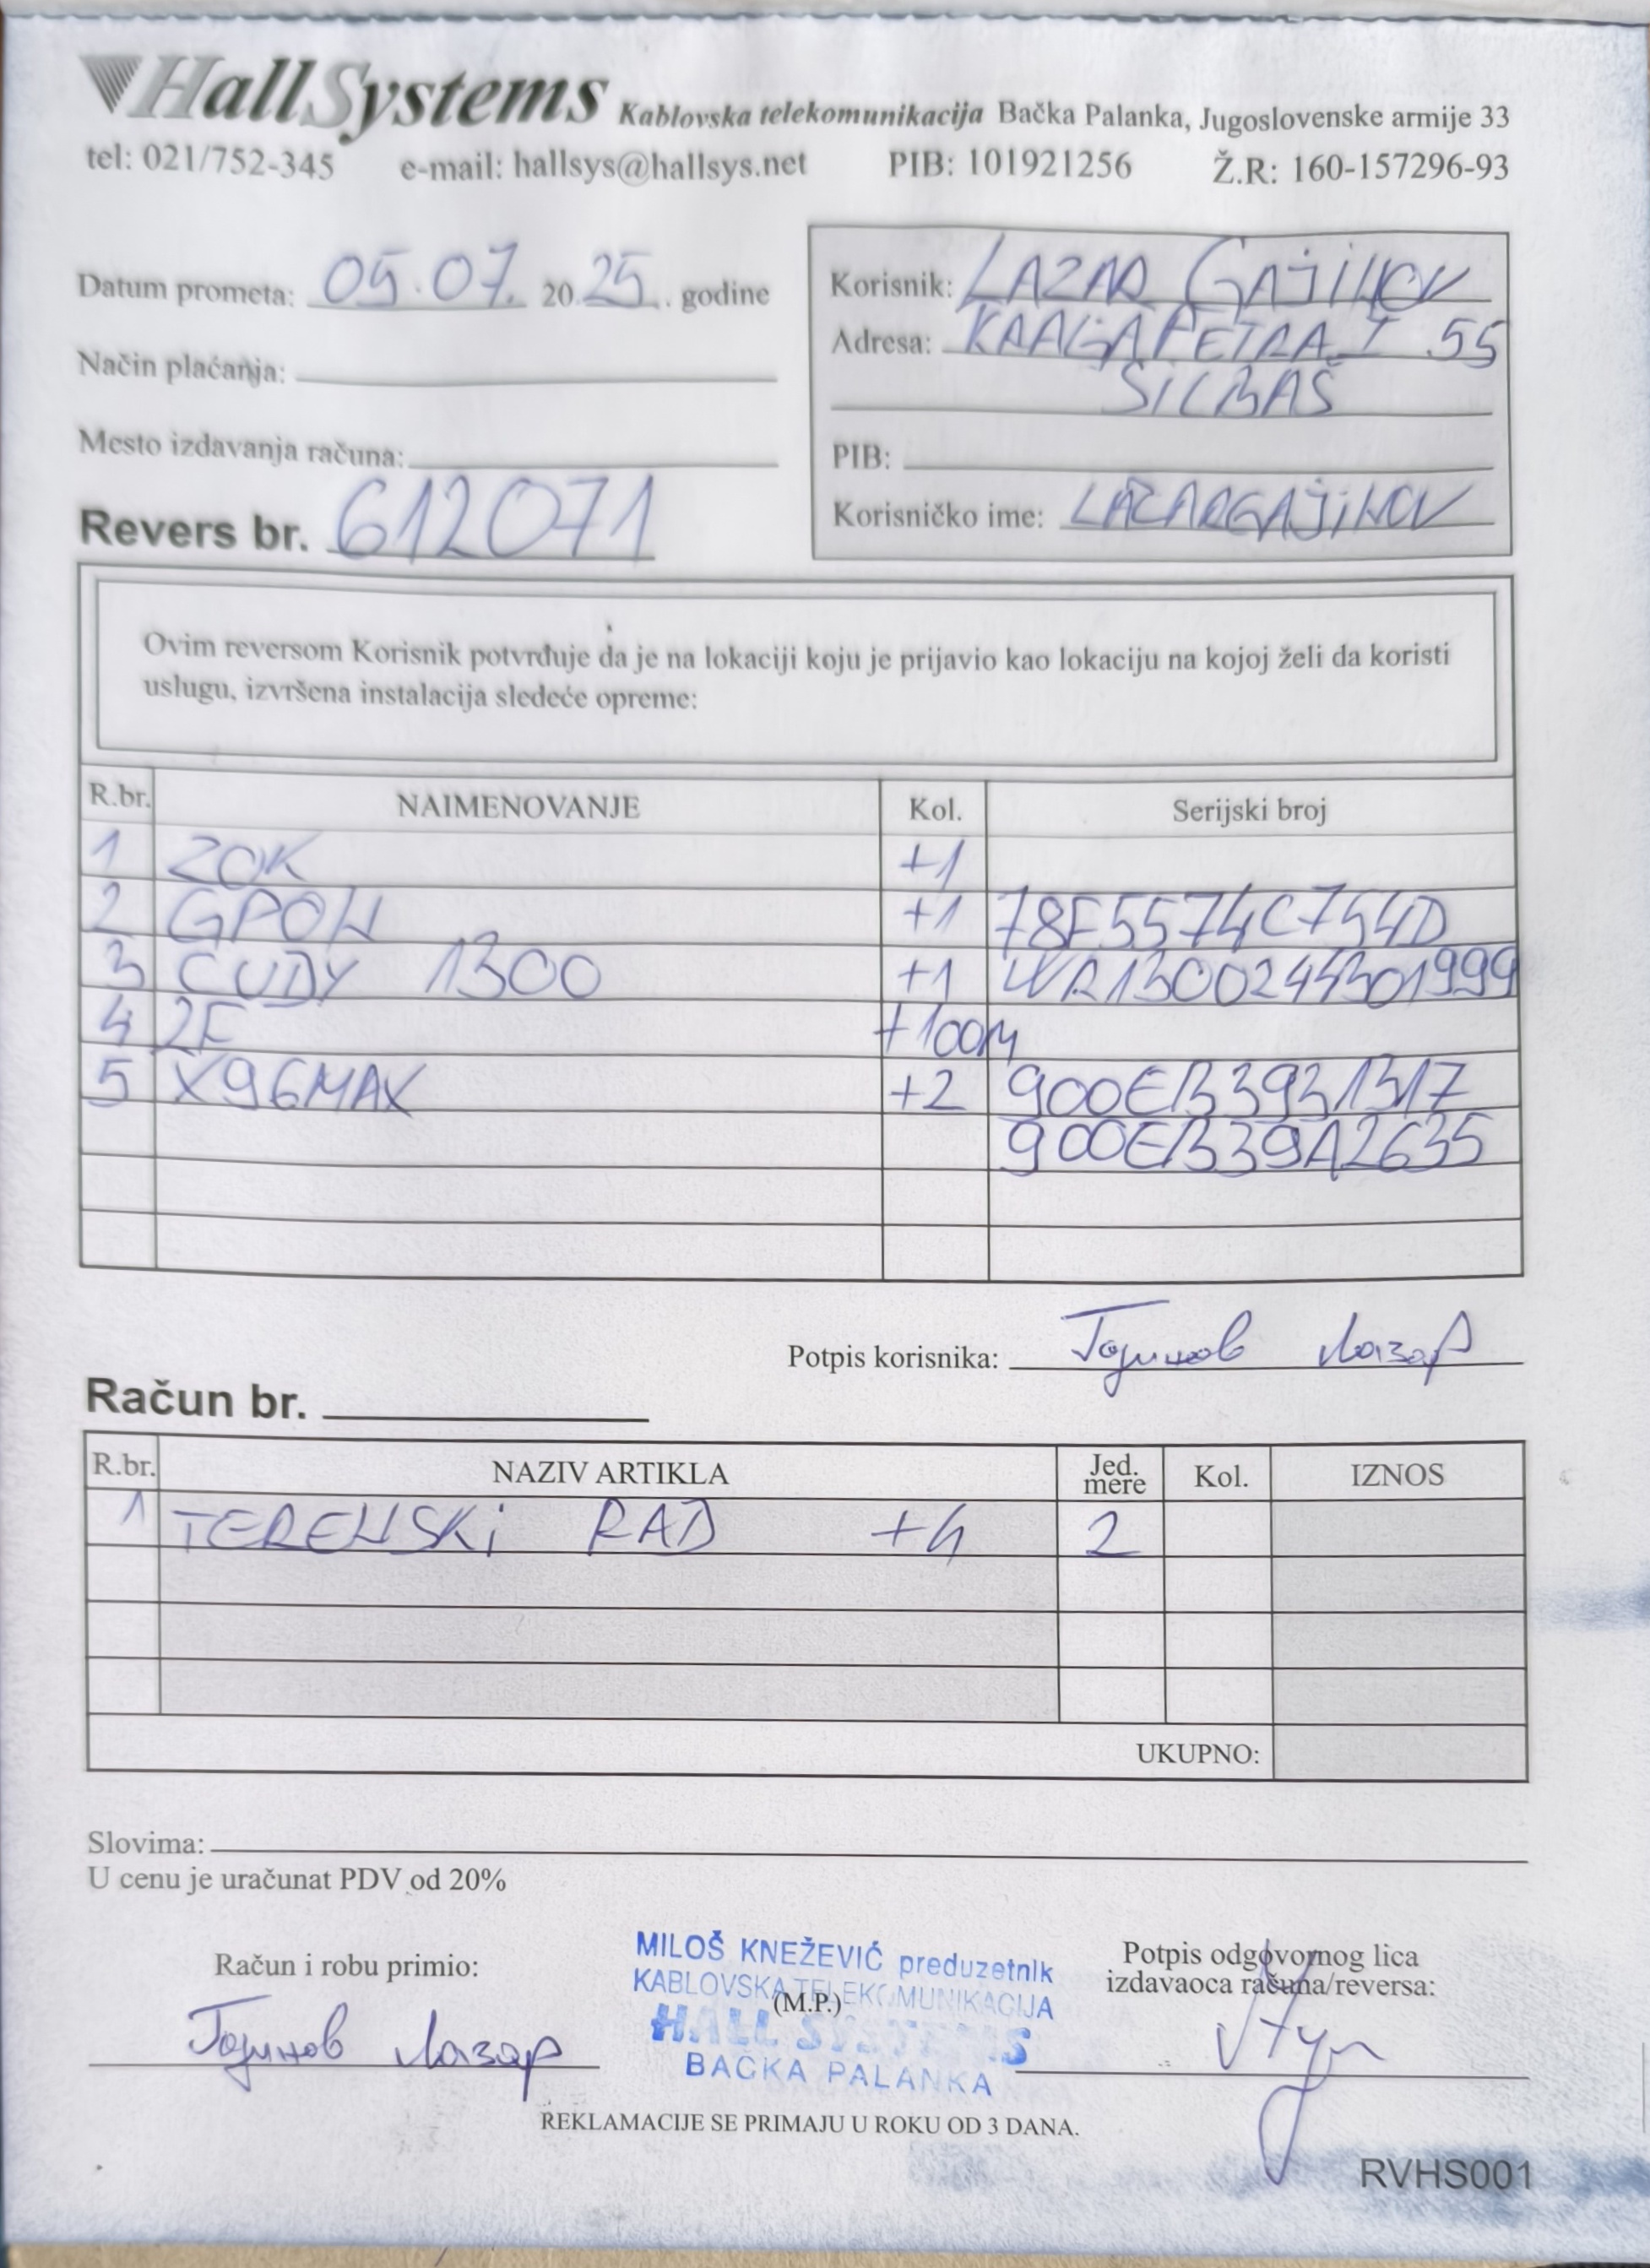 HallSystems Kablovska telekomunikacija Bačka Palanka, Jugoslovenske armije 33
tel: 021/752-345 e-mail: hallsys@hallsys.net PIB: 101921256 Ž.R: 160-157296-93
Datum prometa: 05.07. 2025. godine
Način plaćanja:
Mesto izdavanja računa:
Revers br. 612071
Korisnik: LAZAR GAJINOV
Adresa: KRALJA PETRA I 55
SILBAŠ
PIB:
Korisničko ime: LAZARGAJINOV
Ovim reversom Korisnik potvrđuje da je na lokaciji koju je prijavio kao lokaciju na kojoj želi da koristi
uslugu, izvršena instalacija sledeće opreme:
R.br. NAIMENOVANJE Kol. Serijski broj
1 ZOK +1
2 GPON +1 78F5574C754D
3 CUDY 1300 +1 WR1300244301999
4 2F +100M
5 X96MAX +2 900EB3931317
900EB39A2635
Potpis korisnika: Гајинов Лазар
Račun br.
R.br. NAZIV ARTIKLA Jed. mere Kol. IZNOS
1 TERENSKI RAD +4 2
UKUPNO:
Slovima:
U cenu je uračunat PDV od 20%
Račun i robu primio:
Гајинов Лазар
MILOŠ KNEŽEVIĆ preduzetnik
KABLOVSKA TELEKOMUNIKACIJA
(M.P.)
HALL SYSTEMS
BAČKA PALANKA
Potpis odgovornog lica
izdavaoca računa/reversa:
REKLAMACIJE SE PRIMAJU U ROKU OD 3 DANA.
RVHS001